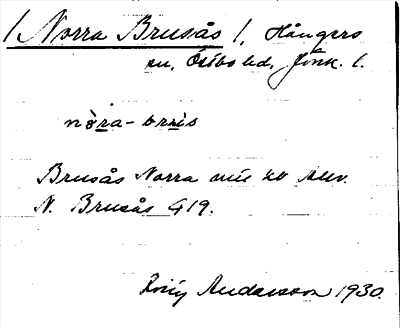 / Norra Brusås /, Hångers
sn, Östbo hd, Jönk. l.
nò̱ra-brris
Brusås Norra
N. Brusås G 19.
Andersson 1930.